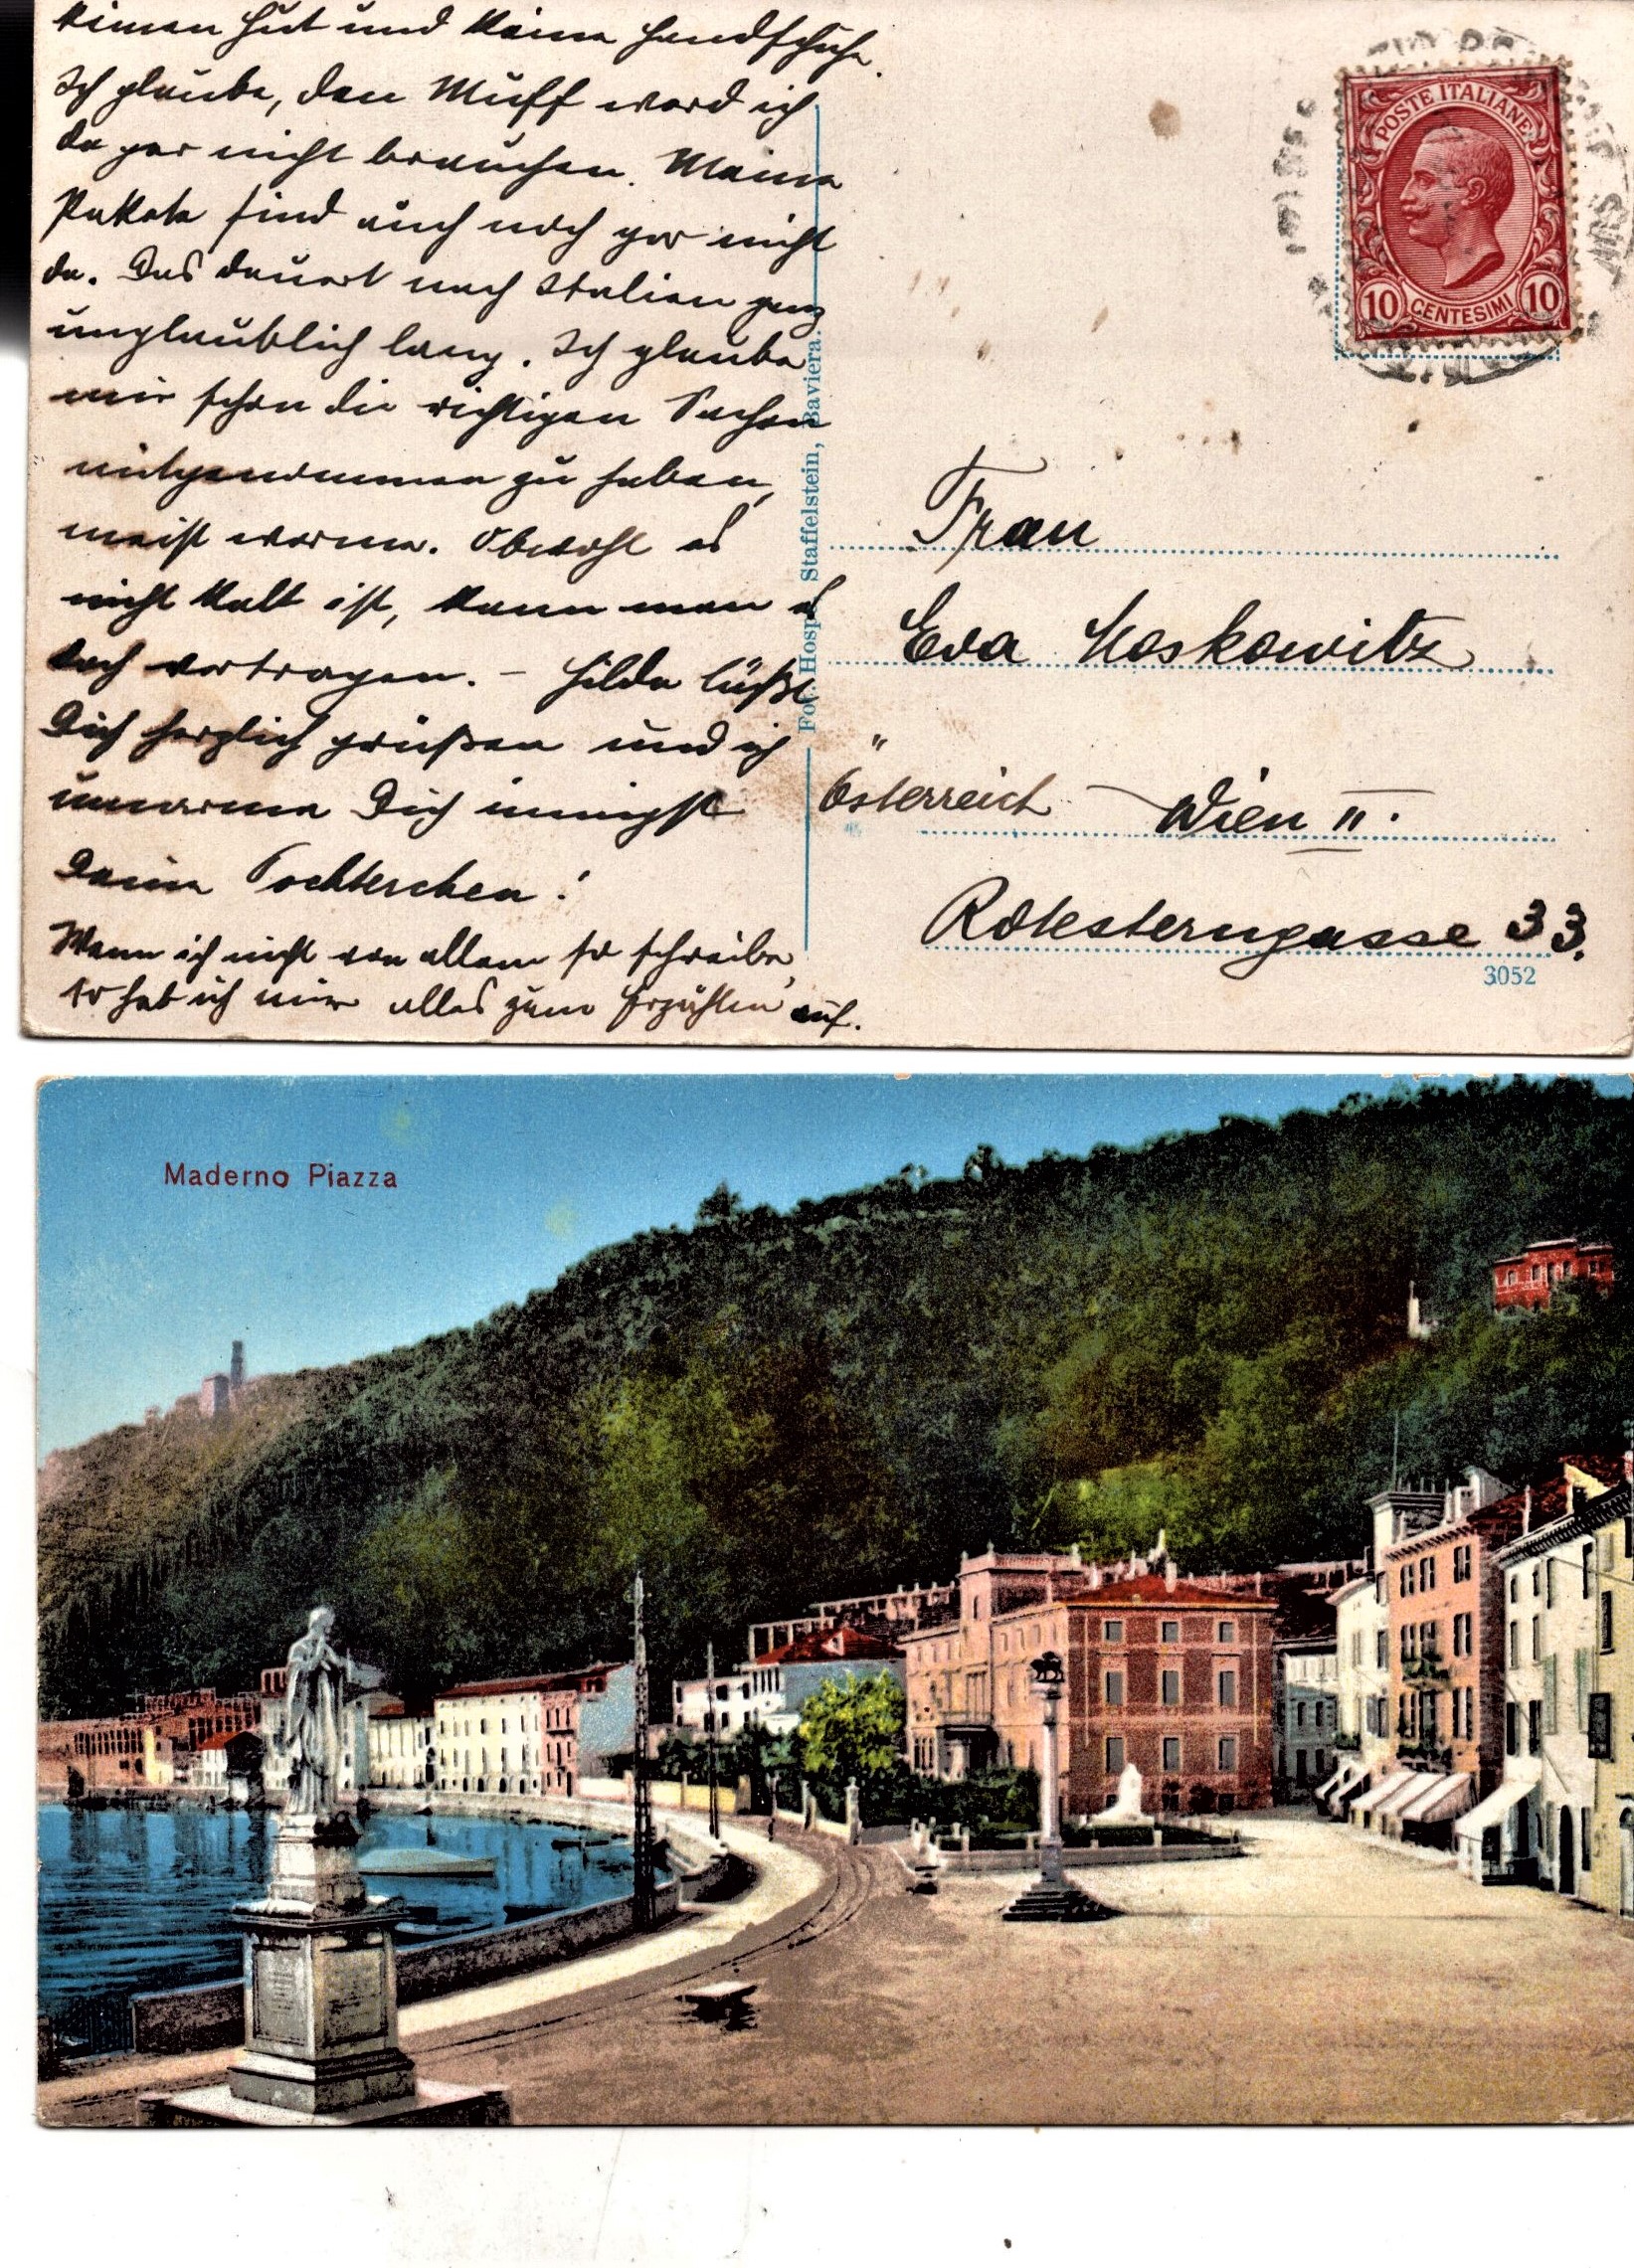 keinen Hut und keine Handschuhe.
Ich glaube, den Muff werd ich
da gar nicht brauchen. Meine
Pakete sind auch noch gar nicht
da. Das dauert nach Italien ganz
unglaublich lang. Ich glaube
mir schon die richtigen Sachen
mitgenommen zu haben,
meist warme. Obwohl es
nicht kalt ist, kann man es
doch vertragen. – Hilda läßt
Dich herzlich grüßen und ich
umarme Dich innigst
Deine Tochterchen!
Wenn ich nicht von allem so schreibe,
so heb ich mir alles zum Erzählen auf.
Fot. Hosp. Staffelstein, Baviera.
POSTE ITALIANE
10 CENTESIMI 10
Frau
Eva Moskowitz
Österreich Wien II.
Rotesterngasse 33.
3052
Maderno Piazza